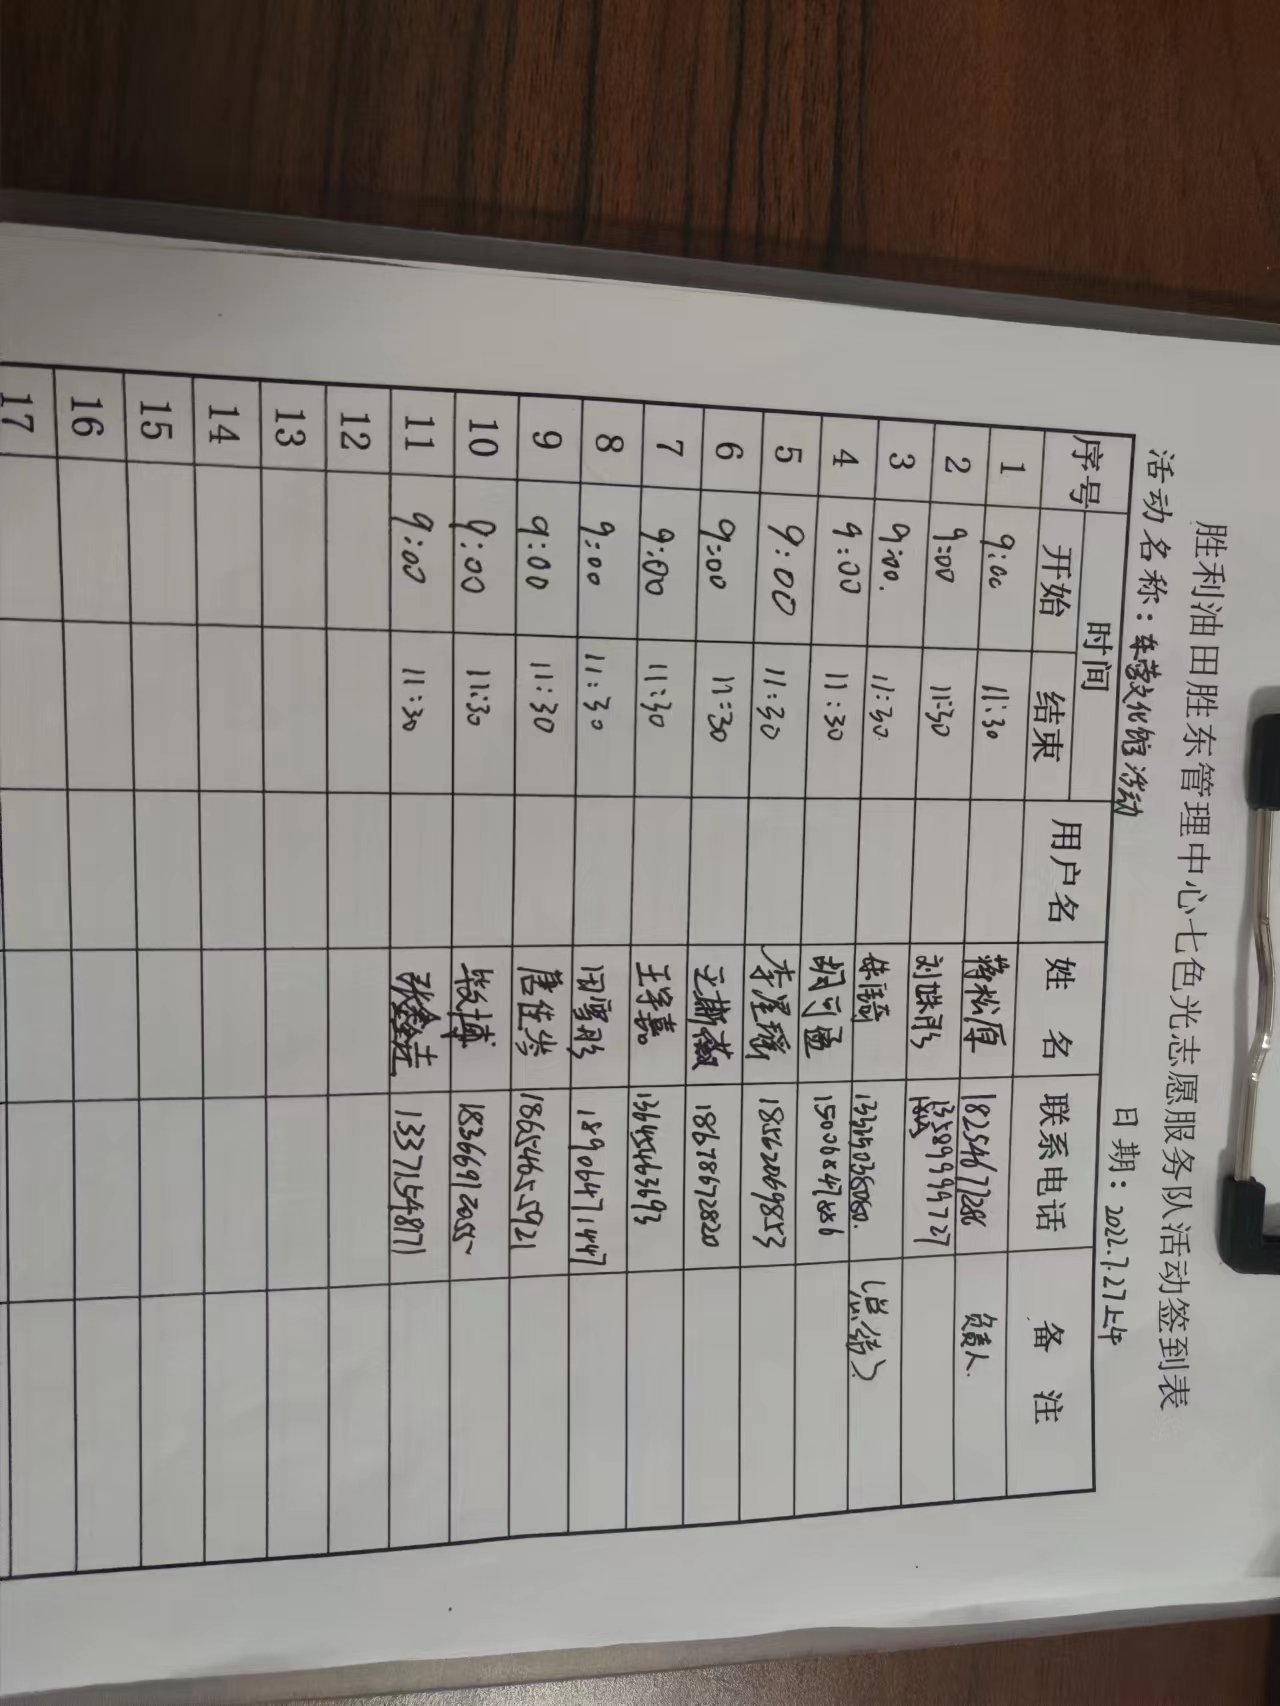 胜利油田胜东管理中心七色光志愿服务队活动签到表
活动名称：东营文化馆活动 日期：2022.7.27上午
序号 时间 用户名 姓名 联系电话 备注
开始 结束
1 9:00 11:30 蒋松厚 18254677286 负责人.
2 9:00 11:30 13589999727
3 9:00. 11:30. 朱骑 13325038080. (总结)
4 9:00 11:30 胡可盈 15006847886
5 9:00 11:30 李星瑶 18562069853
6 9:00 11:30 18678672820
7 9:00 11:30 王学嘉 13645463693
8 9:00 11:30 田雪彤 18906471447
9 9:00 11:30 唐佳岑 18654655921
10 9:00 11:30 18366912055
11 9:00 11:30 13371548711
12
13
14
15
16
17